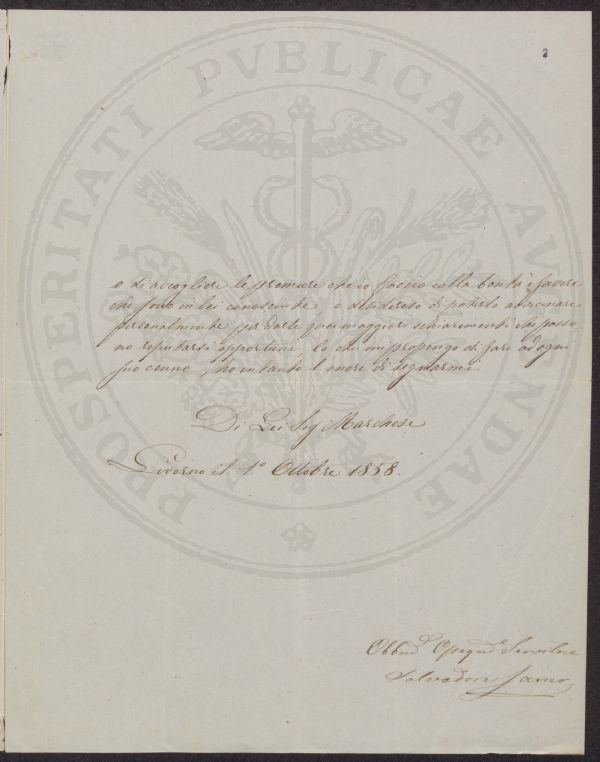 2
PROSPERITATI PVBLICAE AVGENDAE
e di accogliere le premure che io faccio colla bontà e favore
che sono in lei conosciute, e desideroso di poterlo avvicinare
personalmente per darle quei maggiori schiarimenti che posso
no reputarsi opportuni lo che mi propongo di fare ad ogni
suo cenno, ho intanto l'onore di segnarmi
Di Lei Sig Marchese
Livorno il 1° Ottobre 1858.
Obbmo Ossequmo Servitore
Salvadore